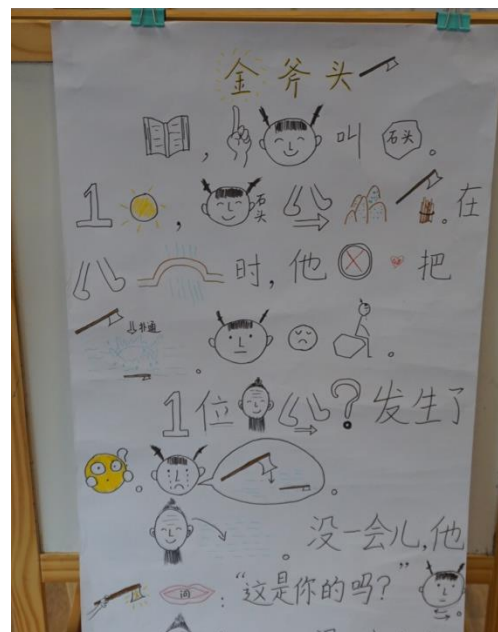 金斧头
, 叫 石头 。
1 , 石头 。在
时,他 把
扑通 。 。
1位 ? 发生了
。 。
。 没一会儿,他
问 :“这是你的吗?”